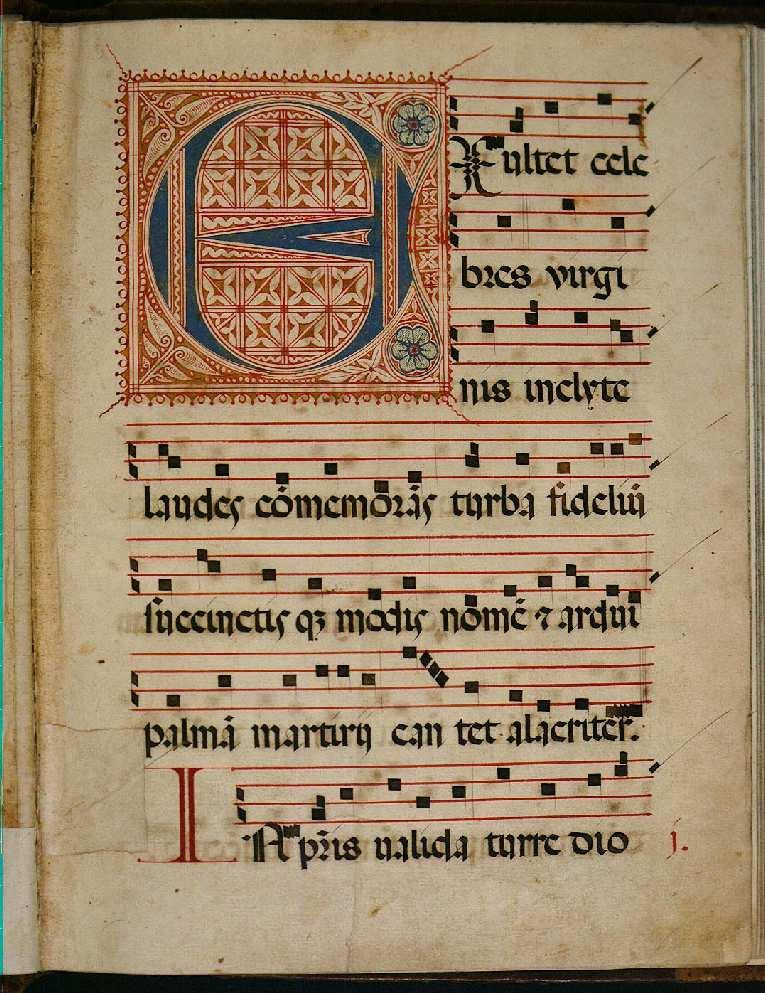 EXultet cele
bres virgi
nis inclyte
laudes cōmemorās turba fideliū
succinctis qꝫ modis nomē ⁊ ardui
palmā martirij can tet alacriter.
IN pr̄is valida turre dio 1.